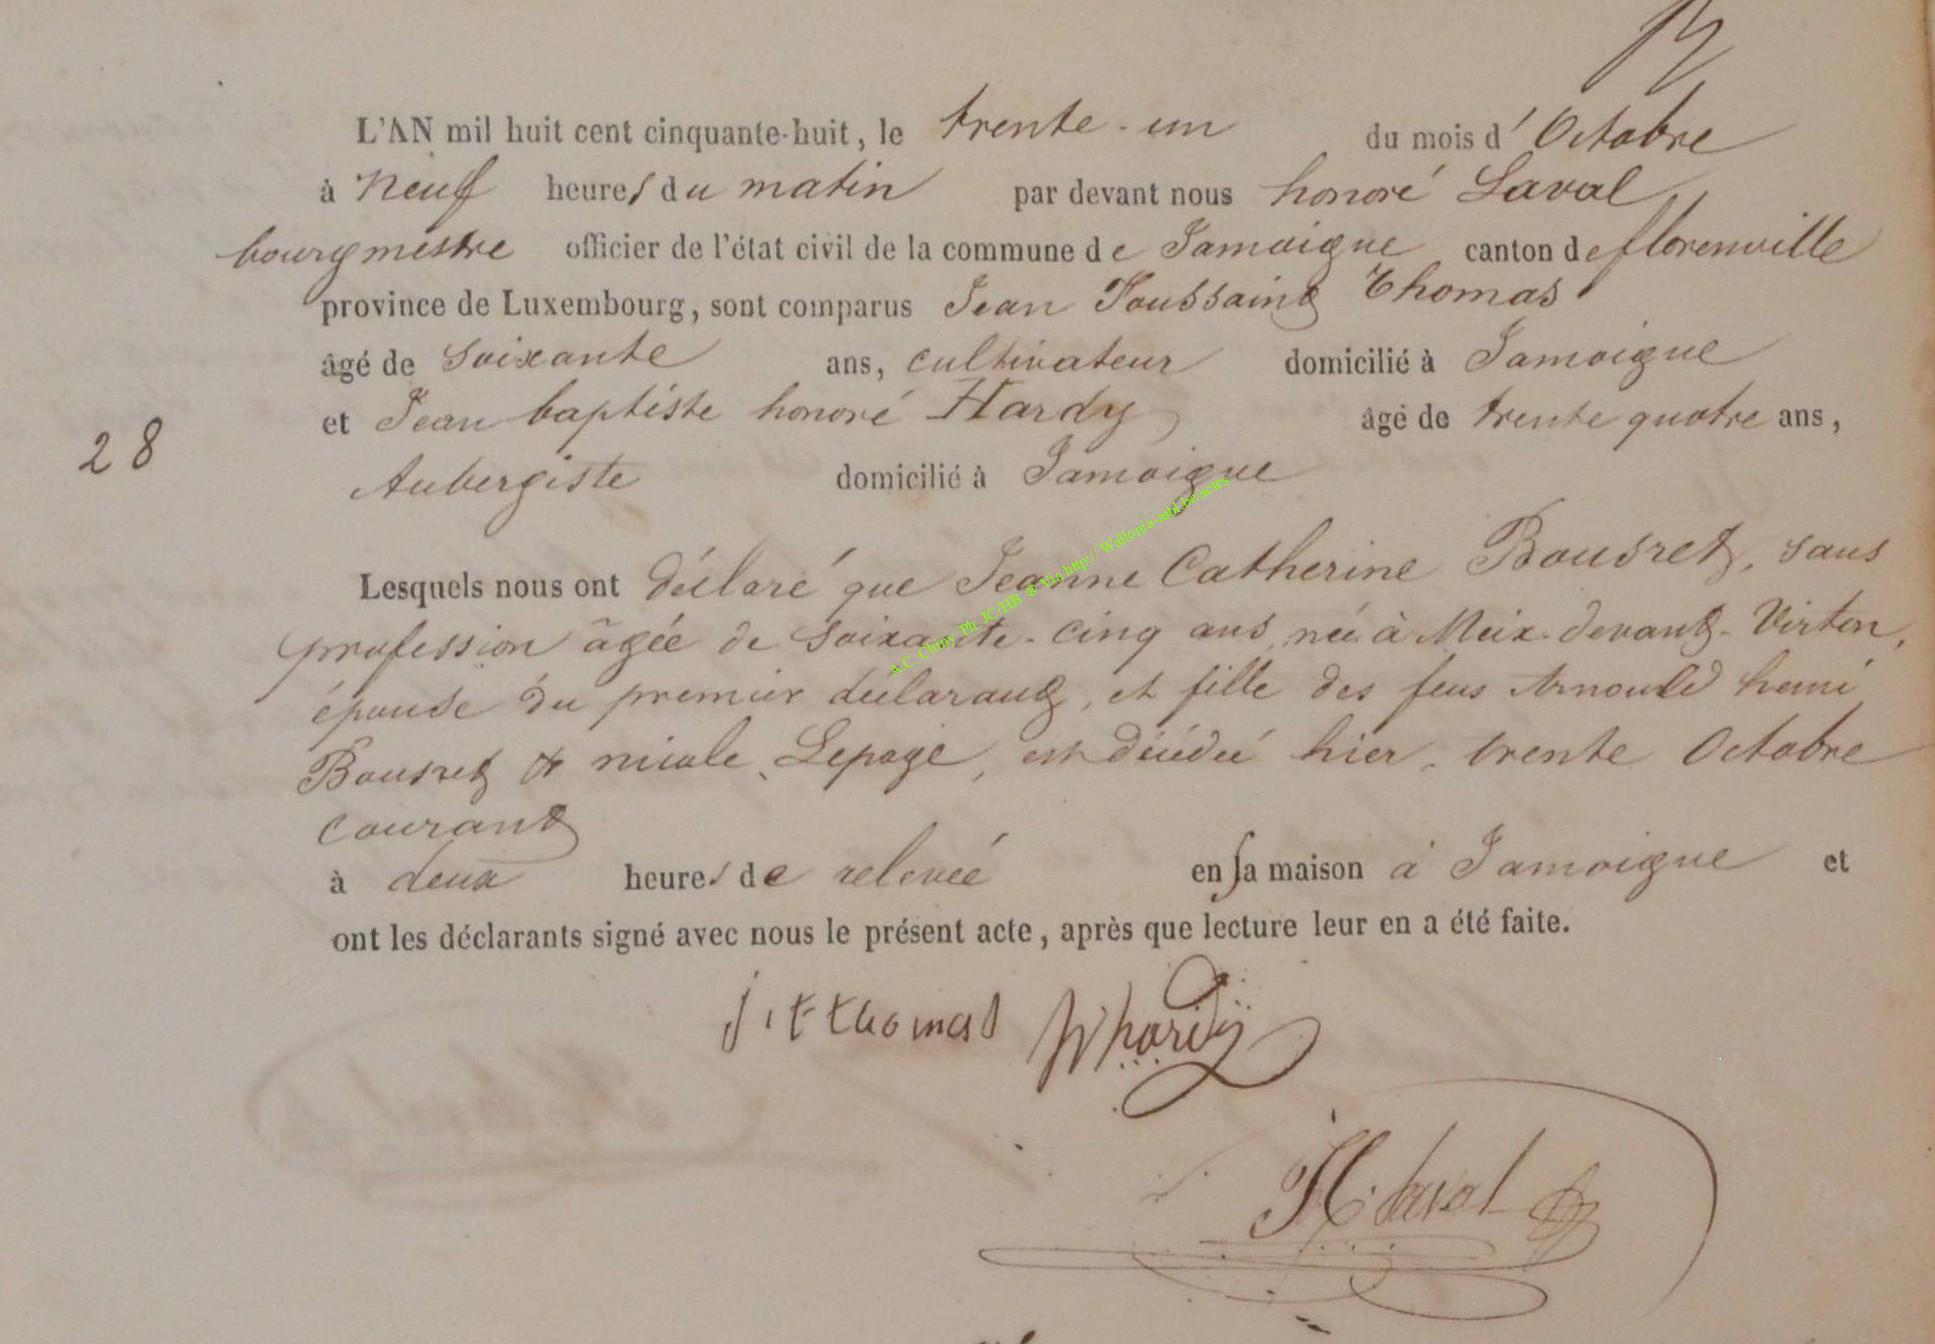 L'AN mil huit cent cinquante-huit, le trente-un du mois d'Octobre
à neuf heures du matin par devant nous honoré Laval
bourgmestre officier de l'état civil de la commune de Jamoigne canton de florenville
province de Luxembourg, sont comparus Jean Toussaint Thomas
âgé de soixante ans, cultivateur domicilié à Jamoigne
et Jean baptiste honoré Hardy âgé de trente quatre ans,
28
Aubergiste domicilié à Jamoigne
A.C. Chiny Ph JC/HB @ Via http:// Wallonia-asbl.be/actes
Lesquels nous ont déclaré que Jeanne Catherine Bousret, sans
profession âgée de soixante-cinq ans, née à Meix-devant-Virton,
épouse du premier déclarant, et fille des feus Arnould henri
Bousret & nicole Lepage, est décédée hier, trente Octobre
courant
à deux heures de relevée en sa maison à Jamoigne et
ont les déclarants signé avec nous le présent acte, après que lecture leur en a été faite.
j.t thomas hardy
H. Laval